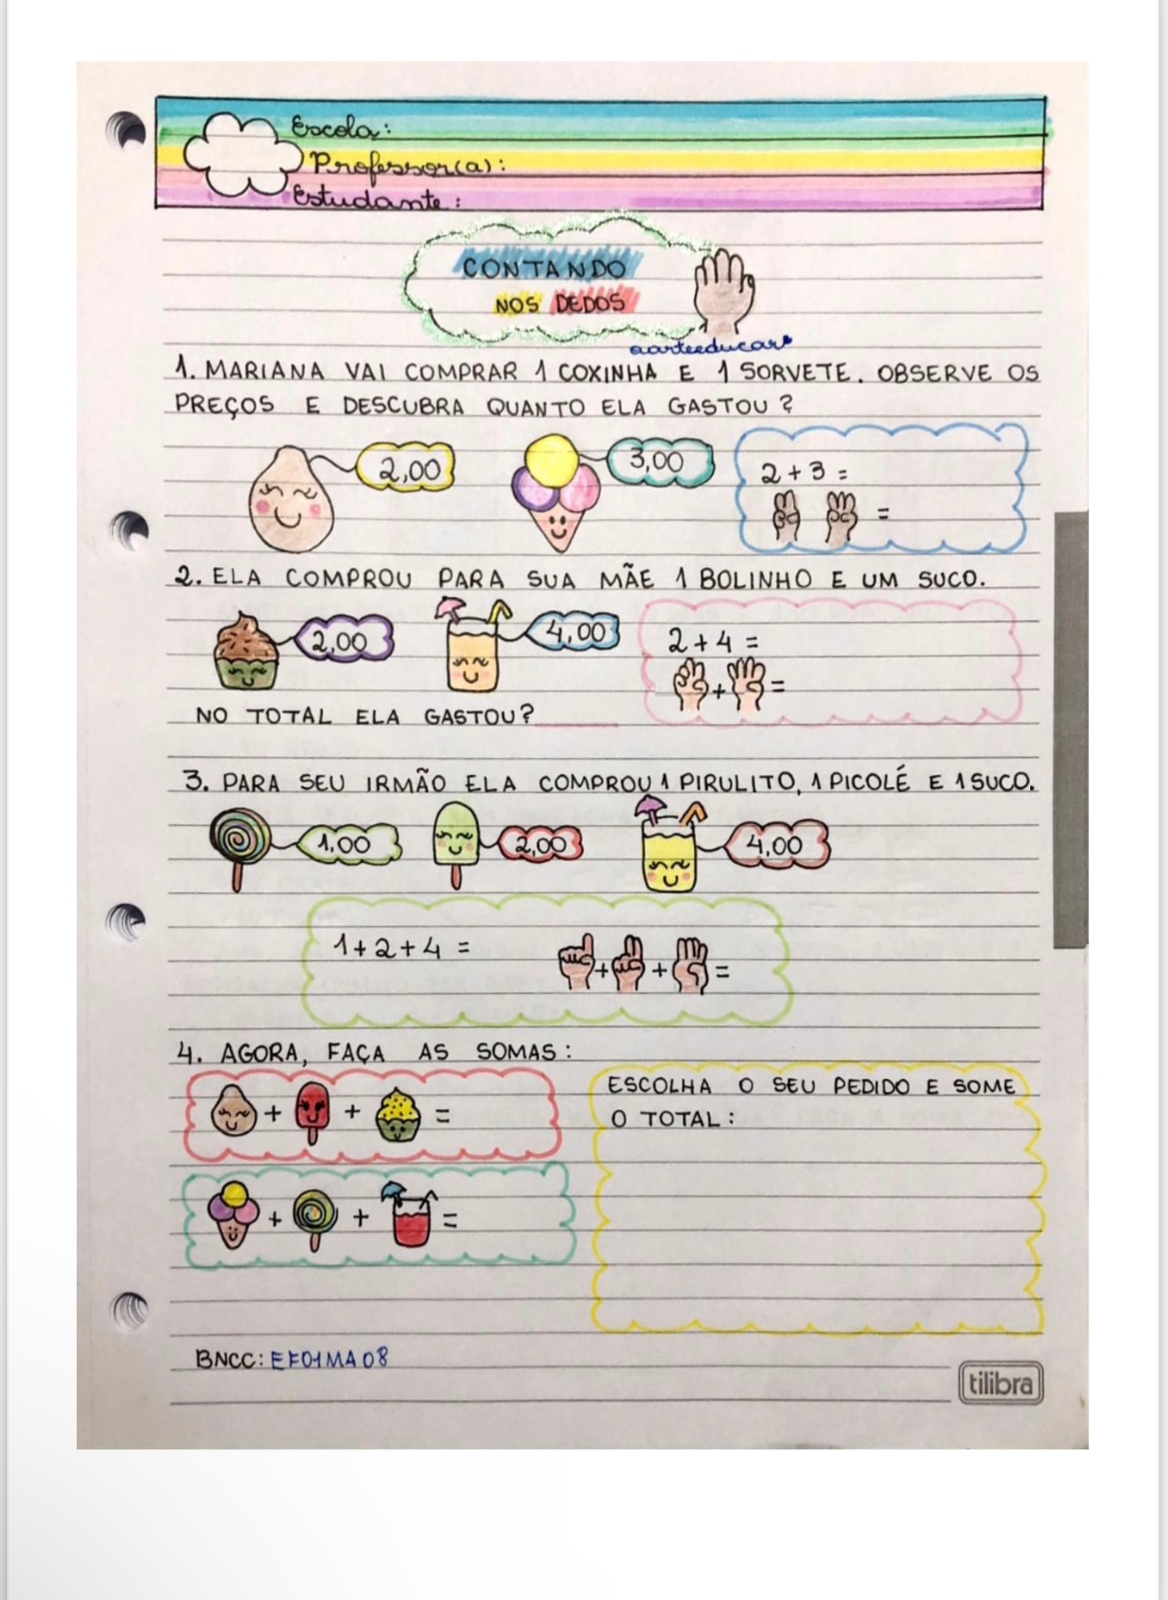 Escola:
Professor(a):
Estudante:
CONTANDO
NOS DEDOS
aarteeducar
1. MARIANA VAI COMPRAR 1 COXINHA E 1 SORVETE. OBSERVE OS
PREÇOS E DESCUBRA QUANTO ELA GASTOU?
2,00
3,00
2+3=
=
2. ELA COMPROU PARA SUA MÃE 1 BOLINHO E UM SUCO.
2,00
4,00
2+4=
+ =
NO TOTAL ELA GASTOU?
3. PARA SEU IRMÃO ELA COMPROU 1 PIRULITO, 1 PICOLÉ E 1 SUCO.
1,00
2,00
4,00
1+2+4=
+ + =
4. AGORA, FAÇA AS SOMAS:
+ + =
+ + =
ESCOLHA O SEU PEDIDO E SOME
O TOTAL:
BNCC: EF01MA08
tilibra